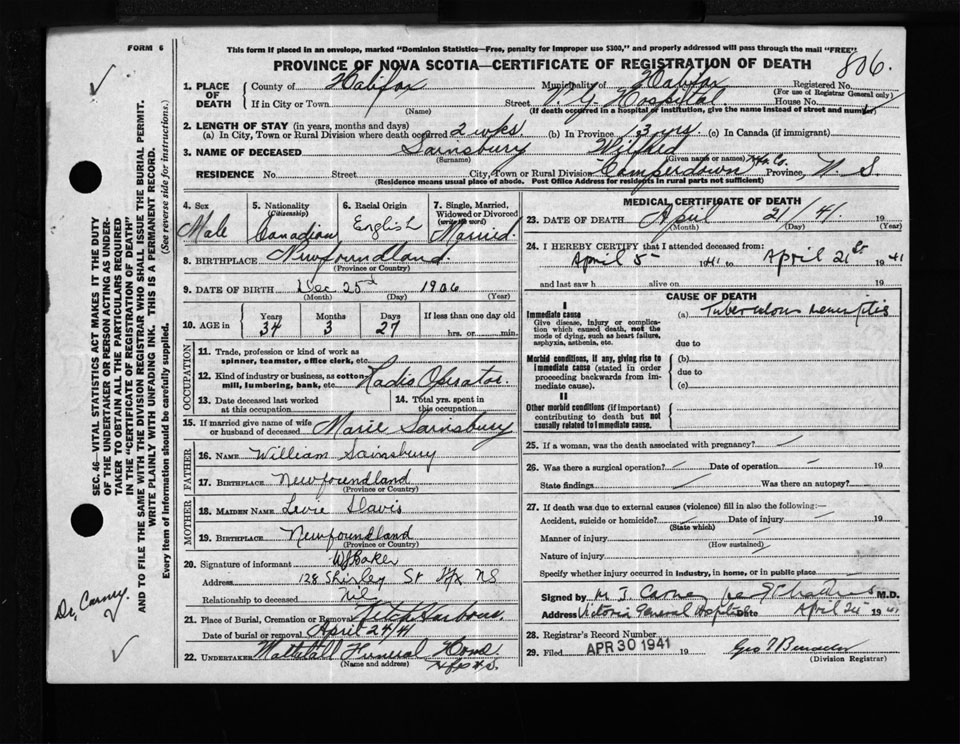 FORM 6
This form if placed in an envelope, marked "Dominion Statistics—Free, penalty for improper use $300," and properly addressed will pass through the mail "FREE"
806.
PROVINCE OF NOVA SCOTIA—CERTIFICATE OF REGISTRATION OF DEATH
1. PLACE OF DEATH
County of Halifax Municipality of Halifax Registered No.
(For use of Registrar General only)
If in City or Town (Name) Street V. G. Hospital House No.
(If death occurred in a hospital or institution, give the name instead of street and number)
2. LENGTH OF STAY (in years, months and days)
(a) In City, Town or Rural Division where death occurred 2 wks. (b) In Province 13 yrs. (c) In Canada (if immigrant)
3. NAME OF DECEASED Sainsbury Wilfred
(Surname) (Given name or names)
RESIDENCE No. Street City, Town or Rural Division Camperdown Hfx Co. Province, N. S.
(Residence means usual place of abode. Post Office Address for residents in rural parts not sufficient)
4. Sex Male
5. Nationality (Citizenship) Canadian
6. Racial Origin English
7. Single, Married, Widowed or Divorced (write the word) Married.
8. BIRTHPLACE Newfoundland.
(Province or Country)
9. DATE OF BIRTH Dec 25 1906
(Month) (Day) (Year)
10. AGE in Years 34 Months 3 Days 27 If less than one day old
hrs. or min.
OCCUPATION
11. Trade, profession or kind of work as spinner, teamster, office clerk, etc.
12. Kind of industry or business, as cotton-mill, lumbering, bank, etc. Radio Operator.
13. Date deceased last worked at this occupation
14. Total yrs. spent in this occupation
15. If married give name of wife or husband of deceased Marie Sainsbury
FATHER
16. NAME William Sainsbury
17. BIRTHPLACE Newfoundland
(Province or Country)
MOTHER
18. MAIDEN NAME Davis
19. BIRTHPLACE Newfoundland
(Province or Country)
20. Signature of informant W J Baker
Address 128 Shirley St Hfx NS
Relationship to deceased Nil
21. Place of Burial, Cremation or Removal Harbour.
Date of burial or removal April 24/41
22. UNDERTAKER Mattatall Funeral Home
(Name and address) Hfx N.S.
MEDICAL CERTIFICATE OF DEATH
23. DATE OF DEATH April 21/41. 19
(Month) (Day) (Year)
24. I HEREBY CERTIFY that I attended deceased from:
April 5- 1941 to April 21st 1941
and last saw h alive on 19
CAUSE OF DEATH
I
Immediate cause
Give disease, injury or complication which caused death, not the mode of dying, such as heart failure, asphyxia, asthenia, etc.
(a) Tuberculous
due to
Morbid conditions, if any, giving rise to immediate cause (stated in order proceeding backwards from immediate cause).
(b)
due to
(c)
II
Other morbid conditions (if important) contributing to death but not causally related to immediate cause.
25. If a woman, was the death associated with pregnancy?
26. Was there a surgical operation? Date of operation 19
State findings Was there an autopsy?
27. If death was due to external causes (violence) fill in also the following:—
Accident, suicide or homicide? Date of injury 19
(State which)
Manner of injury
(How sustained)
Nature of injury
Specify whether injury occurred in industry, in home, or in public place
Signed by M. J. Carney per M.D.
Address Victoria General Hospital Date April 21st 1941
28. Registrar's Record Number
29. Filed APR 30 1941 19
(Division Registrar)
SEC. 46—VITAL STATISTICS ACT MAKES IT THE DUTY
OF THE UNDERTAKER OR PERSON ACTING AS UNDERTAKER TO OBTAIN ALL THE PARTICULARS REQUIRED
IN THE "CERTIFICATE OF REGISTRATION OF DEATH"
AND TO FILE THE SAME WITH THE DIVISION REGISTRAR WHO SHALL ISSUE THE BURIAL PERMIT.
WRITE PLAINLY WITH UNFADING INK. THIS IS A PERMANENT RECORD.
Every item of information should be carefully supplied. (See reverse side for instructions.)
Dr. Carney